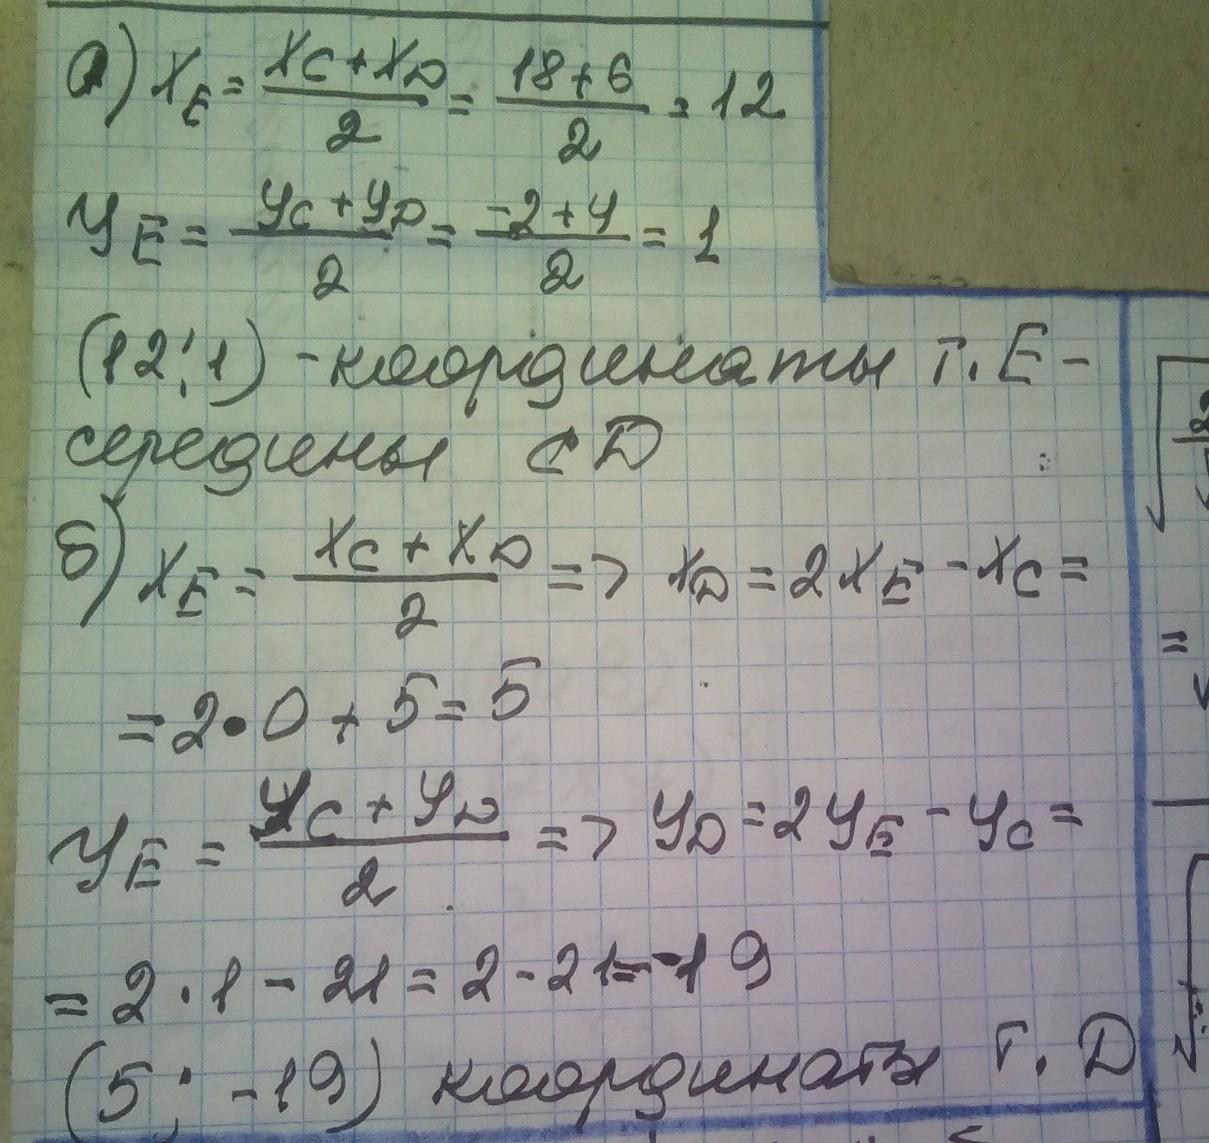 а) XE = (XC + XD)/2 = (18 + 6)/2 = 12
YE = (YC + YD)/2 = (-2 + 4)/2 = 1
(12; 1) - координаты т. E -
середины CD
б) XE = (XC + XD)/2 => XD = 2XE - XC =
= 2 • 0 + 5 = 5
YE = (YC + YD)/2 => YD = 2YE - YC =
= 2 · 1 - 21 = 2 - 21 = -19
(5; -19) координаты т. D